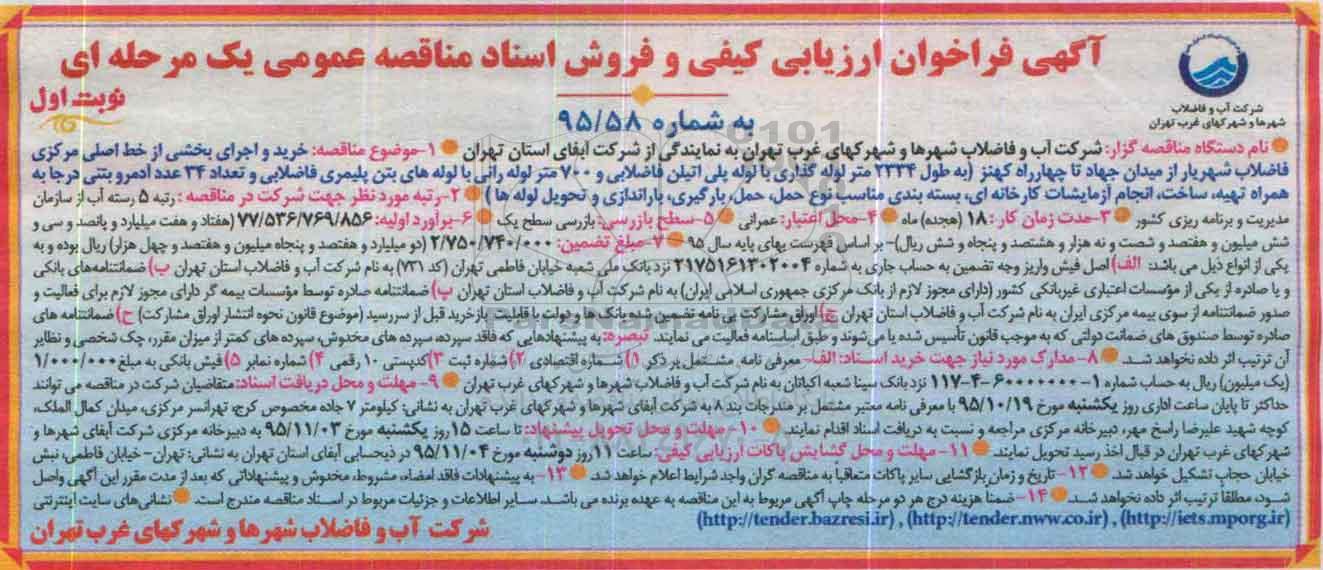 آگهی فراخوان ارزیابی کیفی و فروش اسناد مناقصه عمومی یک مرحله ای
نوبت اول
به شماره ۹۵/۵۸
شرکت آب و فاضلاب
شهرها و شهرکهای غرب تهران
نام دستگاه مناقصه گزار: شرکت آب و فاضلاب شهرها و شهرکهای غرب تهران به نمایندگی از شرکت آبفای استان تهران ۱-موضوع مناقصه: خرید و اجرای بخشی از خط اصلی مرکزی
فاضلاب شهریار از میدان جهاد تا چهارراه کهنز (به طول ۲۳۳۴ متر لوله گذاری با لوله پلی اتیلن فاضلابی و ۷۰۰ متر لوله رانی با لوله های بتن پلیمری فاضلابی و تعداد ۳۴ عدد آدمرو بتنی درجا به
همراه تهیه، ساخت، انجام آزمایشات کارخانه ای، بسته بندی مناسب نوع حمل، حمل، بارگیری، باراندازی و تحویل لوله ها) ۲-رتبه مورد نظر جهت شرکت در مناقصه: رتبه ۵ رسته آب از سازمان
مدیریت و برنامه ریزی کشور ۳-مدت زمان کار: ۱۸ (هجده) ماه ۴-محل اعتبار: عمرانی ۵-سطح بازرسی: بازرسی سطح یک ۶-برآورد اولیه: ۷۷/۵۳۶/۷۶۹/۸۵۶ (هفتاد و هفت میلیارد و پانصد و سی و
شش میلیون و هفتصد و شصت و نه هزار و هشتصد و پنجاه و شش ریال)- بر اساس فهرست بهای پایه سال ۹۵ ۷-مبلغ تضمین: ۲/۷۵۰/۷۴۰/۰۰۰ (دو میلیارد و هفتصد و پنجاه میلیون و هفتصد و چهل هزار) ریال بوده و به
یکی از انواع ذیل می باشد: الف) اصل فیش واریز وجه تضمین به حساب جاری به شماره ۲۱۷۵۱۶۱۳۰۲۰۰۴ نزد بانک ملی شعبه خیابان فاطمی تهران (کد ۷۳۱) به نام شرکت آب و فاضلاب استان تهران ب) ضمانتنامه‌های بانکی
و یا صادره از یکی از مؤسسات اعتباری غیربانکی کشور (دارای مجوز لازم از بانک مرکزی جمهوری اسلامی ایران) به نام شرکت آب و فاضلاب استان تهران پ) ضمانتنامه صادره توسط مؤسسات بیمه گر دارای مجوز لازم برای فعالیت و
صدور ضمانتنامه از سوی بیمه مرکزی ایران به نام شرکت آب و فاضلاب استان تهران ج) اوراق مشارکت بی نامه تضمین شده بانک ها و دولت با قابلیت بازخرید قبل از سررسید (موضوع قانون نحوه انتشار اوراق مشارکت) ح) ضمانتنامه های
صادره توسط صندوق های ضمانت دولتی که به موجب قانون تأسیس شده یا می‌شوند و طبق اساسنامه فعالیت می نمایند. تبصره: به پیشنهادهایی که فاقد سپرده، سپرده های مخدوش، سپرده های کمتر از میزان مقرر، چک شخصی و نظایر
آن ترتیب اثر داده نخواهد شد. ۸-مدارک مورد نیاز جهت خرید اسناد: الف- معرفی نامه مشتمل بر ذکر ۱) شماره اقتصادی ۲) شماره ثبت ۳) کدپستی ۱۰ رقمی ۴) شماره نمابر ۵) فیش بانکی به مبلغ ۱/۰۰۰/۰۰۰
(یک میلیون) ریال به حساب شماره ۱-۶۰۰۰۰۰۰۰-۴-۱۱۷ نزد بانک سینا شعبه اکباتان به نام شرکت آب و فاضلاب شهرها و شهرکهای غرب تهران ۹-مهلت و محل دریافت اسناد: متقاضیان شرکت در مناقصه می توانند
حداکثر تا پایان ساعت اداری روز یکشنبه مورخ ۹۵/۱۰/۱۹ با معرفی نامه معتبر مشتمل بر مندرجات بند ۸ به شرکت آبفای شهرها و شهرکهای غرب تهران به نشانی: کیلومتر ۷ جاده مخصوص کرج، تهرانسر مرکزی، میدان کمال الملک،
کوچه شهید علیرضا راسخ مهر، دبیرخانه مرکزی مراجعه و نسبت به دریافت اسناد اقدام نمایند. ۱۰-مهلت و محل تحویل پیشنهاد: تا ساعت ۱۵ روز یکشنبه مورخ ۹۵/۱۱/۰۳ به دبیرخانه مرکزی شرکت آبفای شهرها و
شهرکهای غرب تهران در قبال اخذ رسید تحویل نمایند. ۱۱-مهلت و محل گشایش پاکات ارزیابی کیفی: ساعت ۱۱ روز دوشنبه مورخ ۹۵/۱۱/۰۴ در ذیحسابی آبفای استان تهران به نشانی: تهران- خیابان فاطمی، نبش
خیابان حجاب تشکیل خواهد شد. ۱۲-تاریخ و زمان بازگشایی سایر پاکات متعاقباً به مناقصه گران واجد شرایط اعلام خواهد شد. ۱۳-به پیشنهادات فاقد امضاء، مشروط، مخدوش و پیشنهاداتی که بعد از مدت مقرر این آگهی واصل
شود، مطلقاً ترتیب اثر داده نخواهد شد. ۱۴-ضمناً هزینه درج هر دو مرحله چاپ آگهی مربوط به این مناقصه به عهده برنده می باشد. سایر اطلاعات و جزئیات مربوط در اسناد مناقصه مندرج است. نشانی‌های سایت اینترنتی
(http://tender.bazresi.ir) , (http://tender.nww.co.ir) , (http://iets.mporg.ir)
شرکت آب و فاضلاب شهرها و شهرکهای غرب تهران